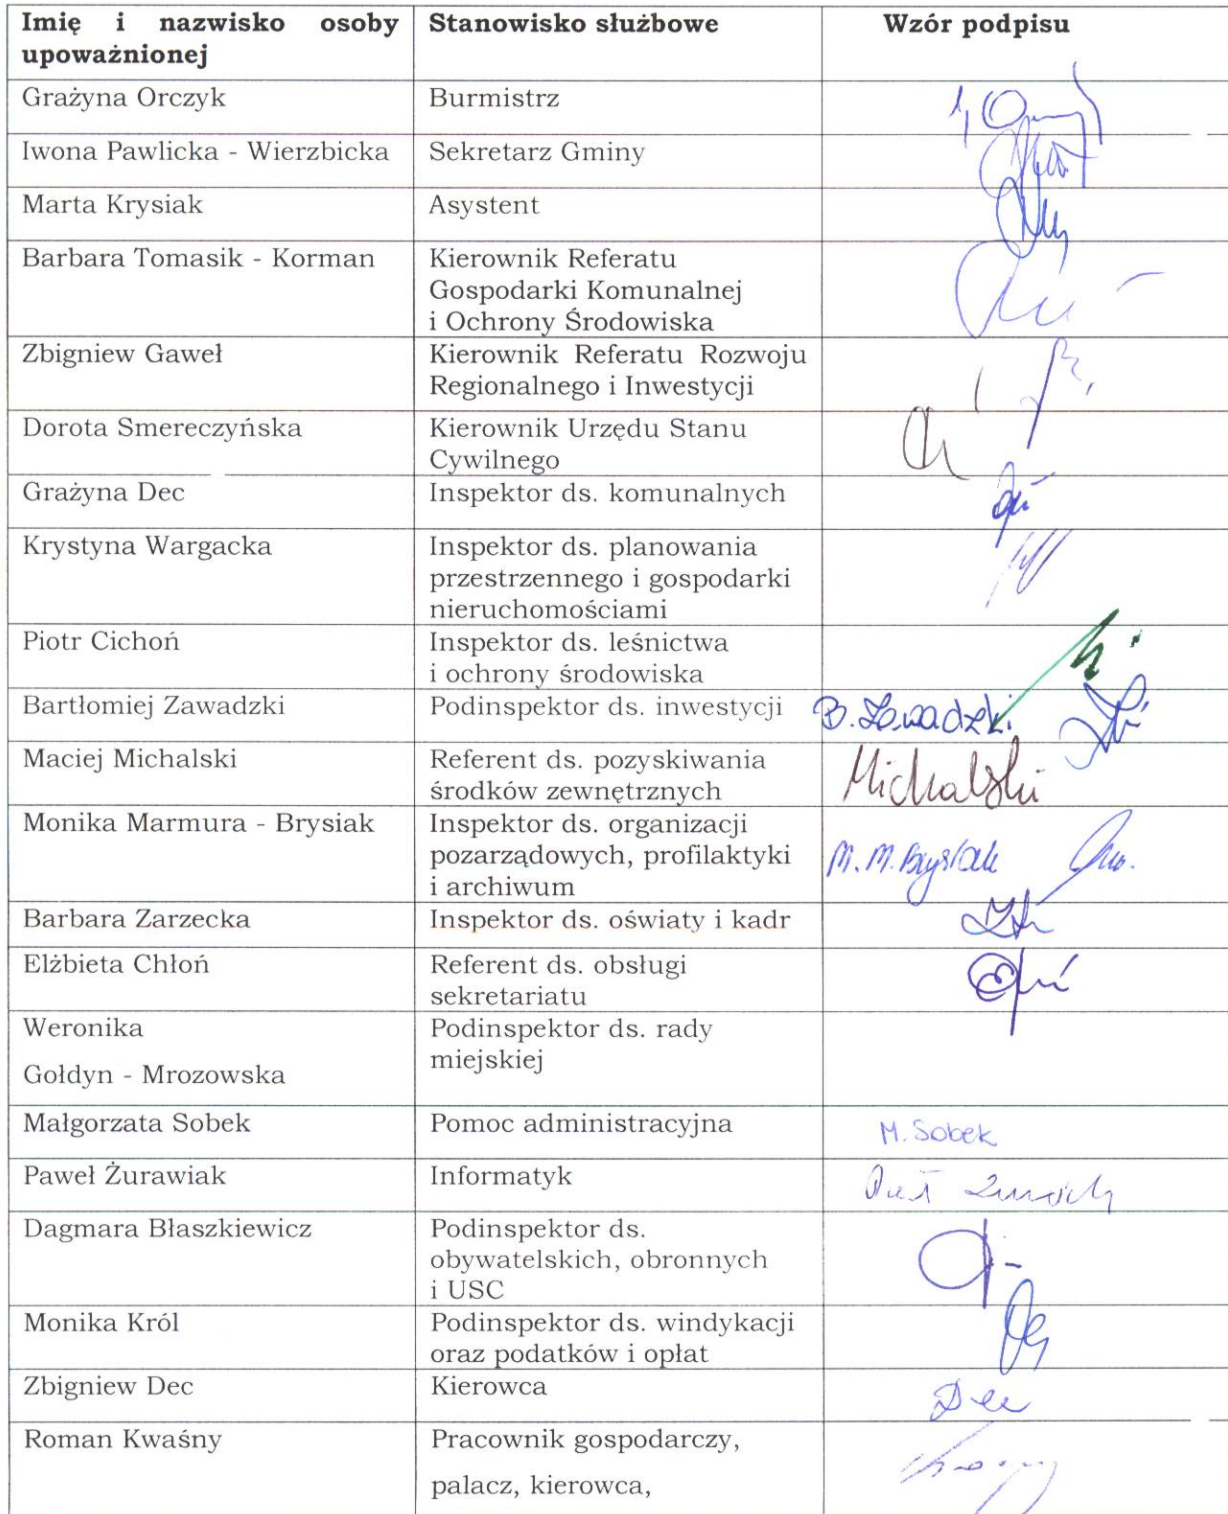 Imię i nazwisko osoby upoważnionej Stanowisko służbowe Wzór podpisu
Grażyna Orczyk Burmistrz
Iwona Pawlicka - Wierzbicka Sekretarz Gminy
Marta Krysiak Asystent
Barbara Tomasik - Korman Kierownik Referatu
Gospodarki Komunalnej
i Ochrony Środowiska
Zbigniew Gaweł Kierownik Referatu Rozwoju
Regionalnego i Inwestycji
Dorota Smereczyńska Kierownik Urzędu Stanu
Cywilnego
Grażyna Dec Inspektor ds. komunalnych
Krystyna Wargacka Inspektor ds. planowania
przestrzennego i gospodarki
nieruchomościami
Piotr Cichoń Inspektor ds. leśnictwa
i ochrony środowiska
Bartłomiej Zawadzki Podinspektor ds. inwestycji B. Zawadzki
Maciej Michalski Referent ds. pozyskiwania
środków zewnętrznych Michalski
Monika Marmura - Brysiak Inspektor ds. organizacji
pozarządowych, profilaktyki M. M. Brysiak
i archiwum
Barbara Zarzecka Inspektor ds. oświaty i kadr
Elżbieta Chłoń Referent ds. obsługi
sekretariatu
Weronika Podinspektor ds. rady
Gołdyn - Mrozowska miejskiej
Małgorzata Sobek Pomoc administracyjna M. Sobek
Paweł Żurawiak Informatyk
Dagmara Błaszkiewicz Podinspektor ds.
obywatelskich, obronnych
i USC
Monika Król Podinspektor ds. windykacji
oraz podatków i opłat
Zbigniew Dec Kierowca Dec
Roman Kwaśny Pracownik gospodarczy,
palacz, kierowca,